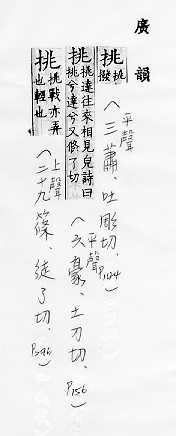 廣韻
挑 挑撥
(平聲 三蕭、吐彫切、P144)
挑 挑達往來相見皃詩曰
挑兮達兮又了切
(平聲 六豪、土刀切、P156)
挑 挑戰亦弄
也輕也
(上聲 二十九篠、徒了切、P296)